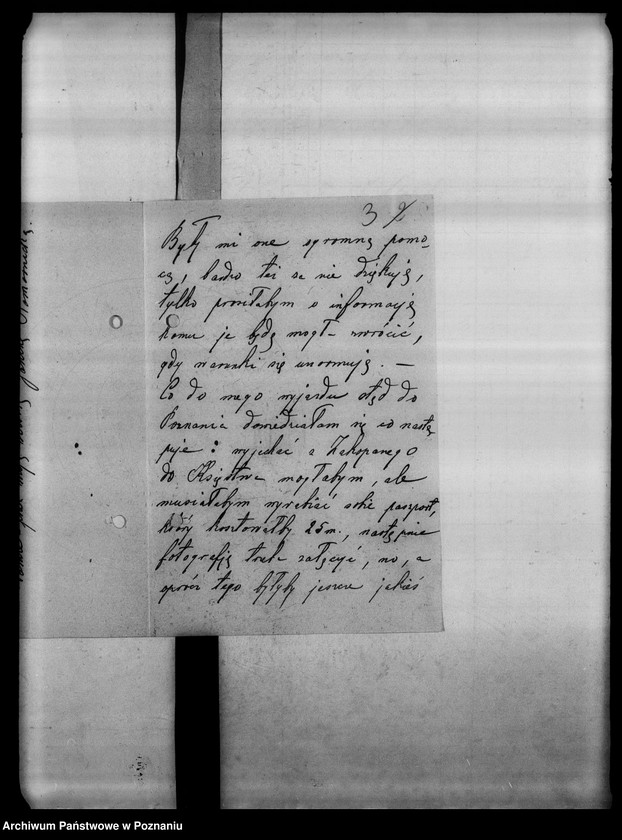 3
Były mi one ogromną pomo-
cą, bardo też za nie dziękuję,
tylko prosiłabym o informację
komu je będę mogł- zwrócić,
gdy warunki się unormują. —
Co do mego wyjazdu stąd do
Poznania dowiedziałam się co nastę
puje : wyjechać z Zakopanego
do Księstwa mogłabym, ale
musiałabym wyrobić sobie paszport,
który kosztowałby 25 m., następnie
fotografję trzeba załączyć, no, a
oprócz tego byłyby jeszcze jakieś
Archiwum Państwowe w Poznaniu